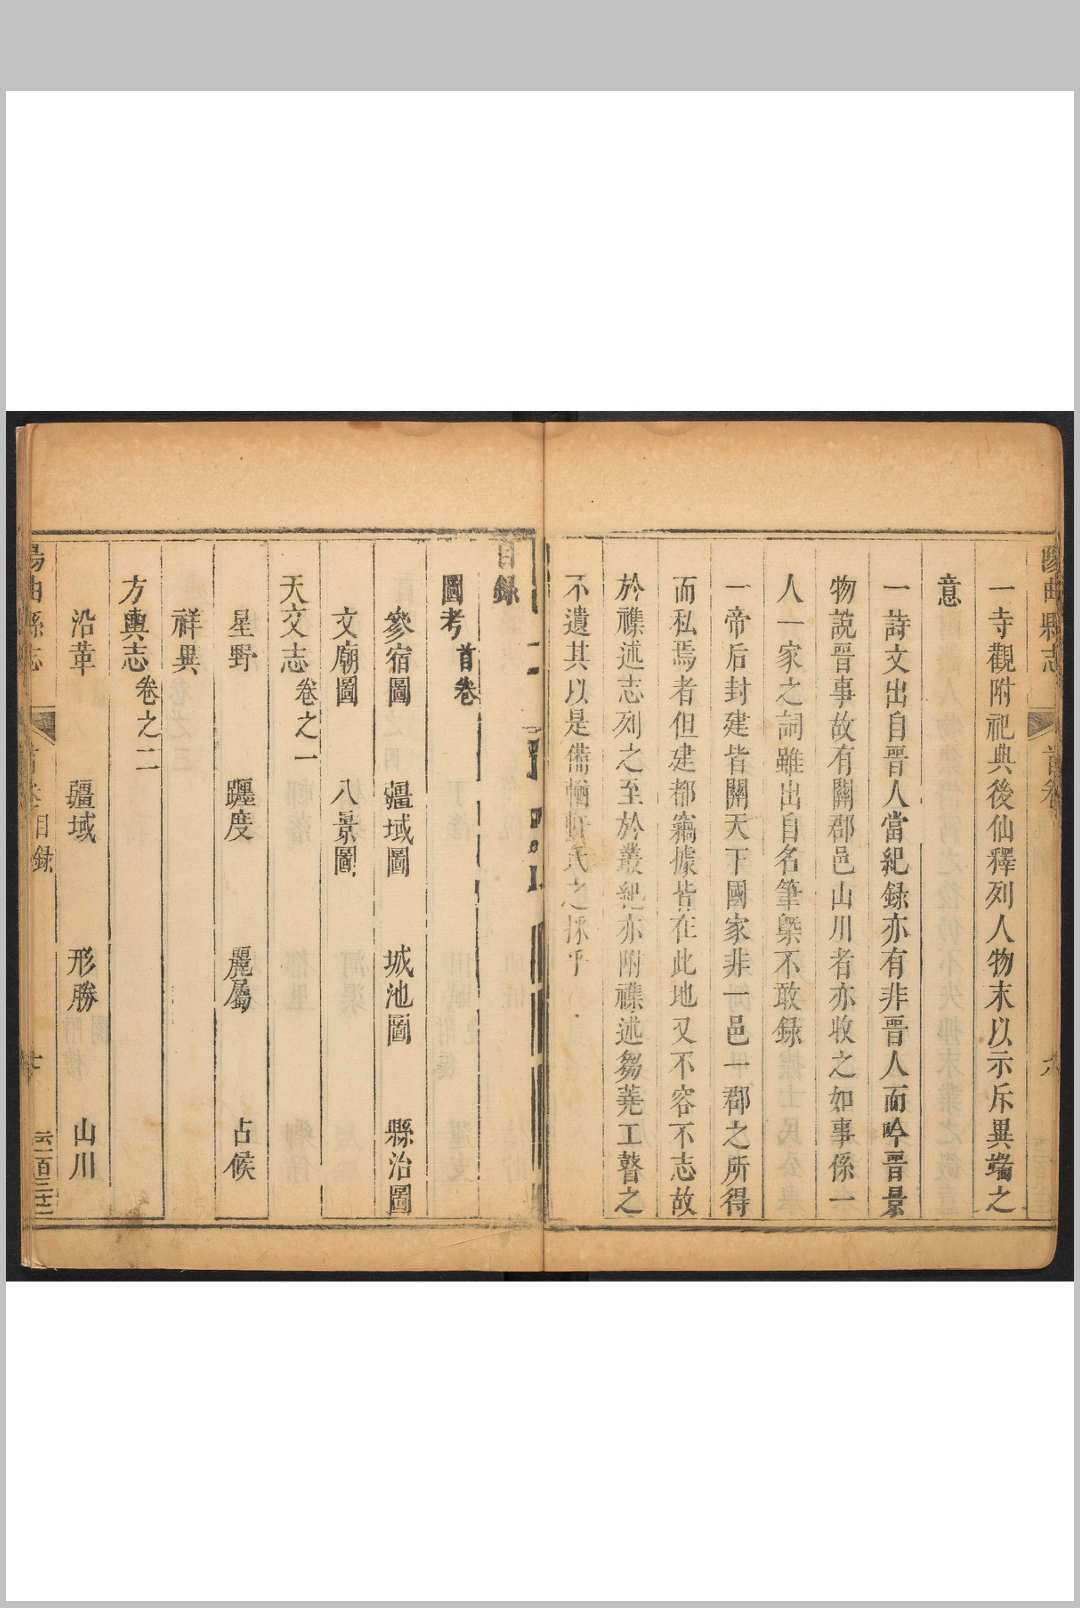 陽曲縣志 首卷 六
一寺觀附祀典後仙釋列人物末以示斥異端之
意
一詩文出自晉人當紀録亦有非晉人而吟晉景
物說晉事故有關郡邑山川者亦收之如事係一
人一家之詞雖出自名筆槩不敢録
一帝后封建皆關天下國家非一邑一郡之所得
而私焉者但建都竊據皆在此地又不容不志故
於襍述志列之至於叢紀亦附襍述芻蕘工瞽之
不遺其以是備輶軒氏之採乎
目録
圖考 首卷
參宿圖 疆域圖 城池圖 縣治圖
文廟圖 八景圖
天文志 卷之一
星野 躔度 麗屬 占候
祥異
方輿志 卷之二
沿革 疆域 形勝 山川
陽曲縣志 首卷目録 七